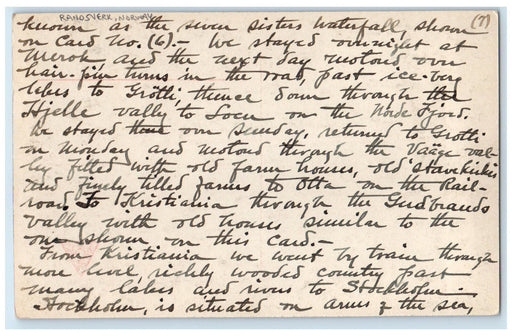 RANDSVERK, NORWAY
(7)
known as the seven sisters waterfall, shown
on Card No. (6).- We stayed overnight at
Merok, and the next day motored over
hair-pin turns in the road, past ice-berg
lakes to Grotti, thence down through the
Hjelle vally to Loen on the Nord Fjord.
We stayed there over Sunday, returned to Grotti
on Monday and motored through the Vaage val-
ley fitted with old farm houses, old Stavekirkes
and finely tilled farms to Otta on the Rail-
road. To Kristiania through the Gudbrands
valley with old houses similar to the
one shown on this card.-
From Kristiania we went by train through
more level, richly wooded country past
many lakes and rivers to Stockholm.
Stockholm, is situated on arms of the sea,